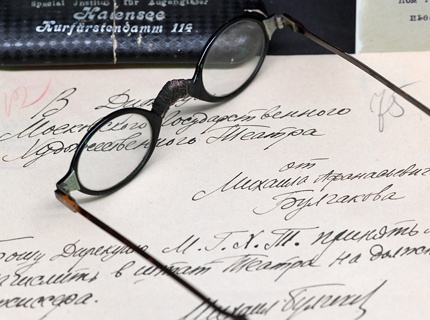 Spezial Institut für Augengläser
Halensee
Kurfürstendamm 114
75
В Дирекцию
Московского Государственного
Художественного Театра
от
Михаила Афанасьевич
Булгакова
рошу Дирекцию М.Г.Х.Т. принять
ачислить в штат Театра на долж
жиссера.
Михаил Булгаков